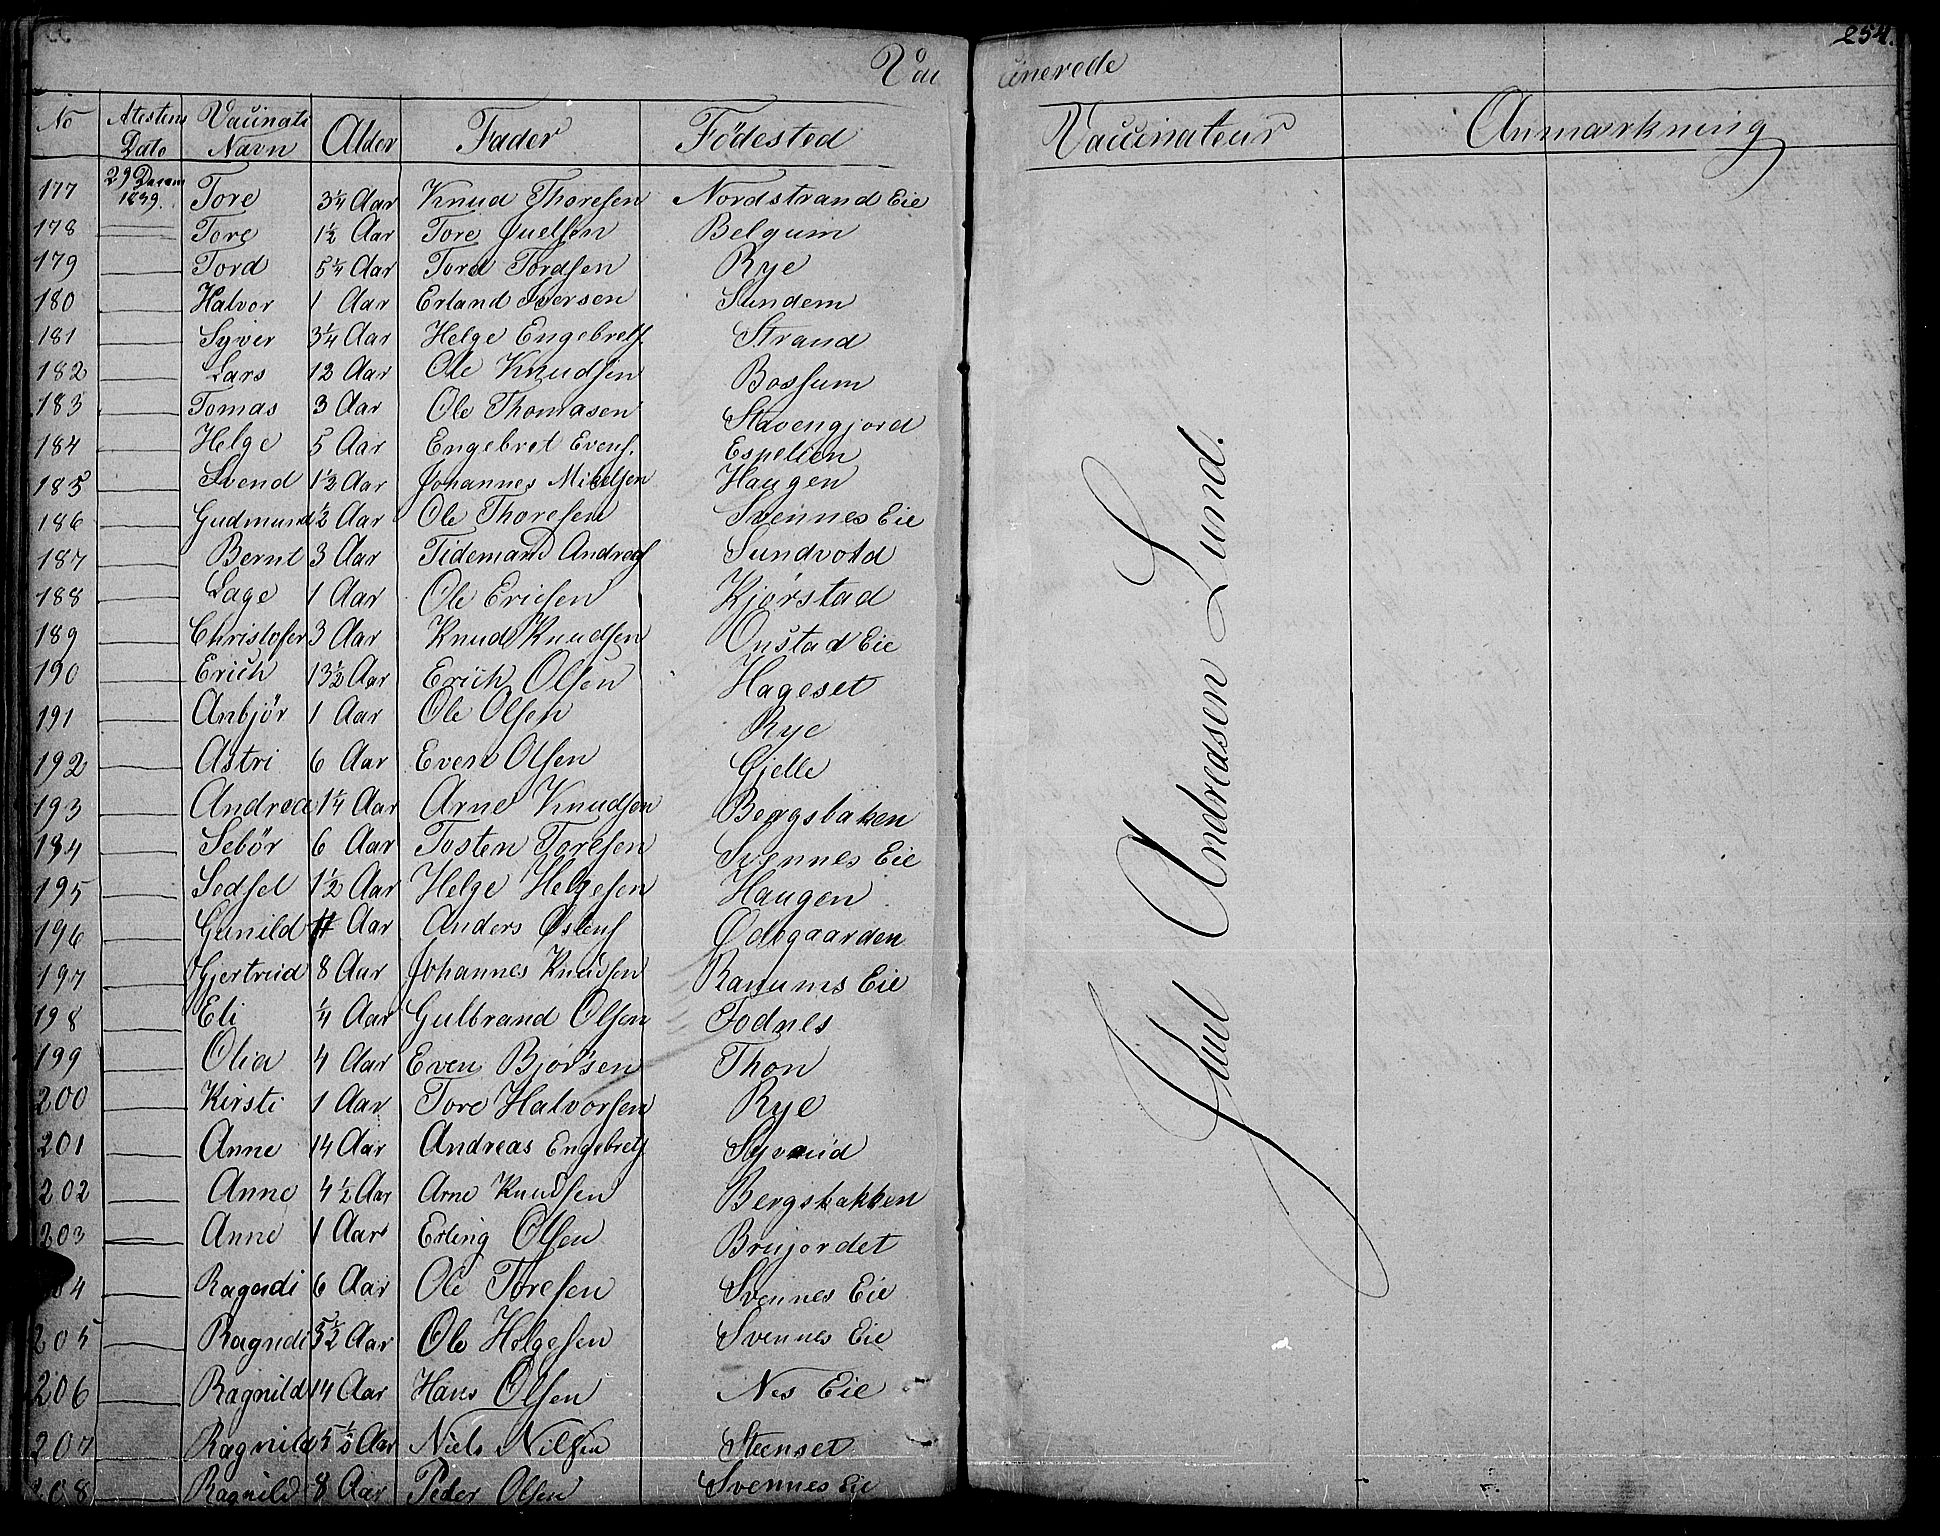 254.
Vaccinerede
No Atestens Dato Vaccinati Navn Alder Fader Födested Vaccinateur Anmærkning
177 29 Decem 1839. Tore 3/4 Aar Knud Thoresen Nordstrand Eie
178 Tore 1 1/2 Aar Tore Juelsen Belgum
179 Tord 5 1/4 Aar Tord Tordsen Rye
180 Halvor 1 Aar Erland Iversen Sundem
181 Syver 3/4 Aar Helge Engebrets. Strand
182 Lars 12 Aar Ole Knudsen Bossum
183 Tomas 3 Aar Ole Thomasen Stavengjord
184 Helge 5 Aar Engebret Evens. Espelien
185 Svend 1 1/2 Aar Johannes Mikelsen Haugen
186 Gudmund 1/2 Aar Ole Thoresen Svennes Eie
187 Bernt 3 Aar Tidemand Andreas Sundvold
188 Lage 1 Aar Ole Ericsen Kjørstad
189 Christofer 3 Aar Knud Knudsen Onstad Eie
190 Erich 13 1/2 Aar Erich Olsen Hageset
191 Anbjör 1 Aar Ole Olsen Rye
192 Astri 6 Aar Even Olsen Gjelle
193 Andrea 1/4 Aar Arne Knudsen Bergsbaken
194 Sebör 6 Aar Tosten Toresen Svennes Eie
195 Sedsel 1 1/2 Aar Helge Helgesen Haugen
196 Gunild Aar Anders Østens Ødegaarden
197 Gjertrud 8 Aar Johannes Knudsen Ranums Eie
198 Eli 1/4 Aar Gulbrand Olsen Fodnes
199 Olia 4 Aar Even Bjørsen Thon
200 Kirsti 1 Aar Tore Halvorsen Rye
201 Anne 14 Aar Andreas Engebrets Syverud
202 Anne 4 1/2 Aar Arne Knudsen Bergsbakken
203 Anne 1 Aar Erling Olsen Brujordet
4 Ragndi 6 Aar Ole Toresen Svennes Eie
205 Ragndi 5 1/2 Aar Ole Helgesen Svennes Eie
206 Ragnild 14 Aar Hans Olsen Nes Eie
207 Ragnild 5 1/2 Aar Niels Nilsen Steenset
208 Ragnild 8 Aar Peder Olsen Svennes Eie
Juul Andreasen Lund.